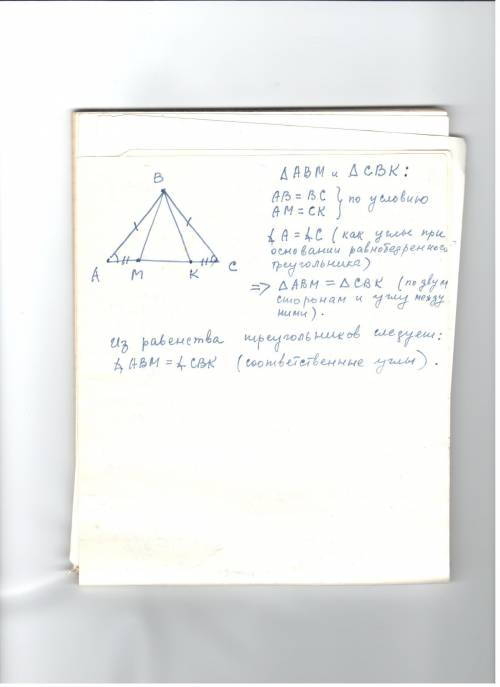 B
A M K C
△ABM и △CBK:
AB = BC } по условию
AM = CK
∡A = ∡C (как углы при
основании равнобедренного
треугольника)
=> △ABM = △CBK (по двум
сторонам и углу между
ними).
Из равенства треугольников следует:
∡ABM = ∡CBK (соответственные углы).